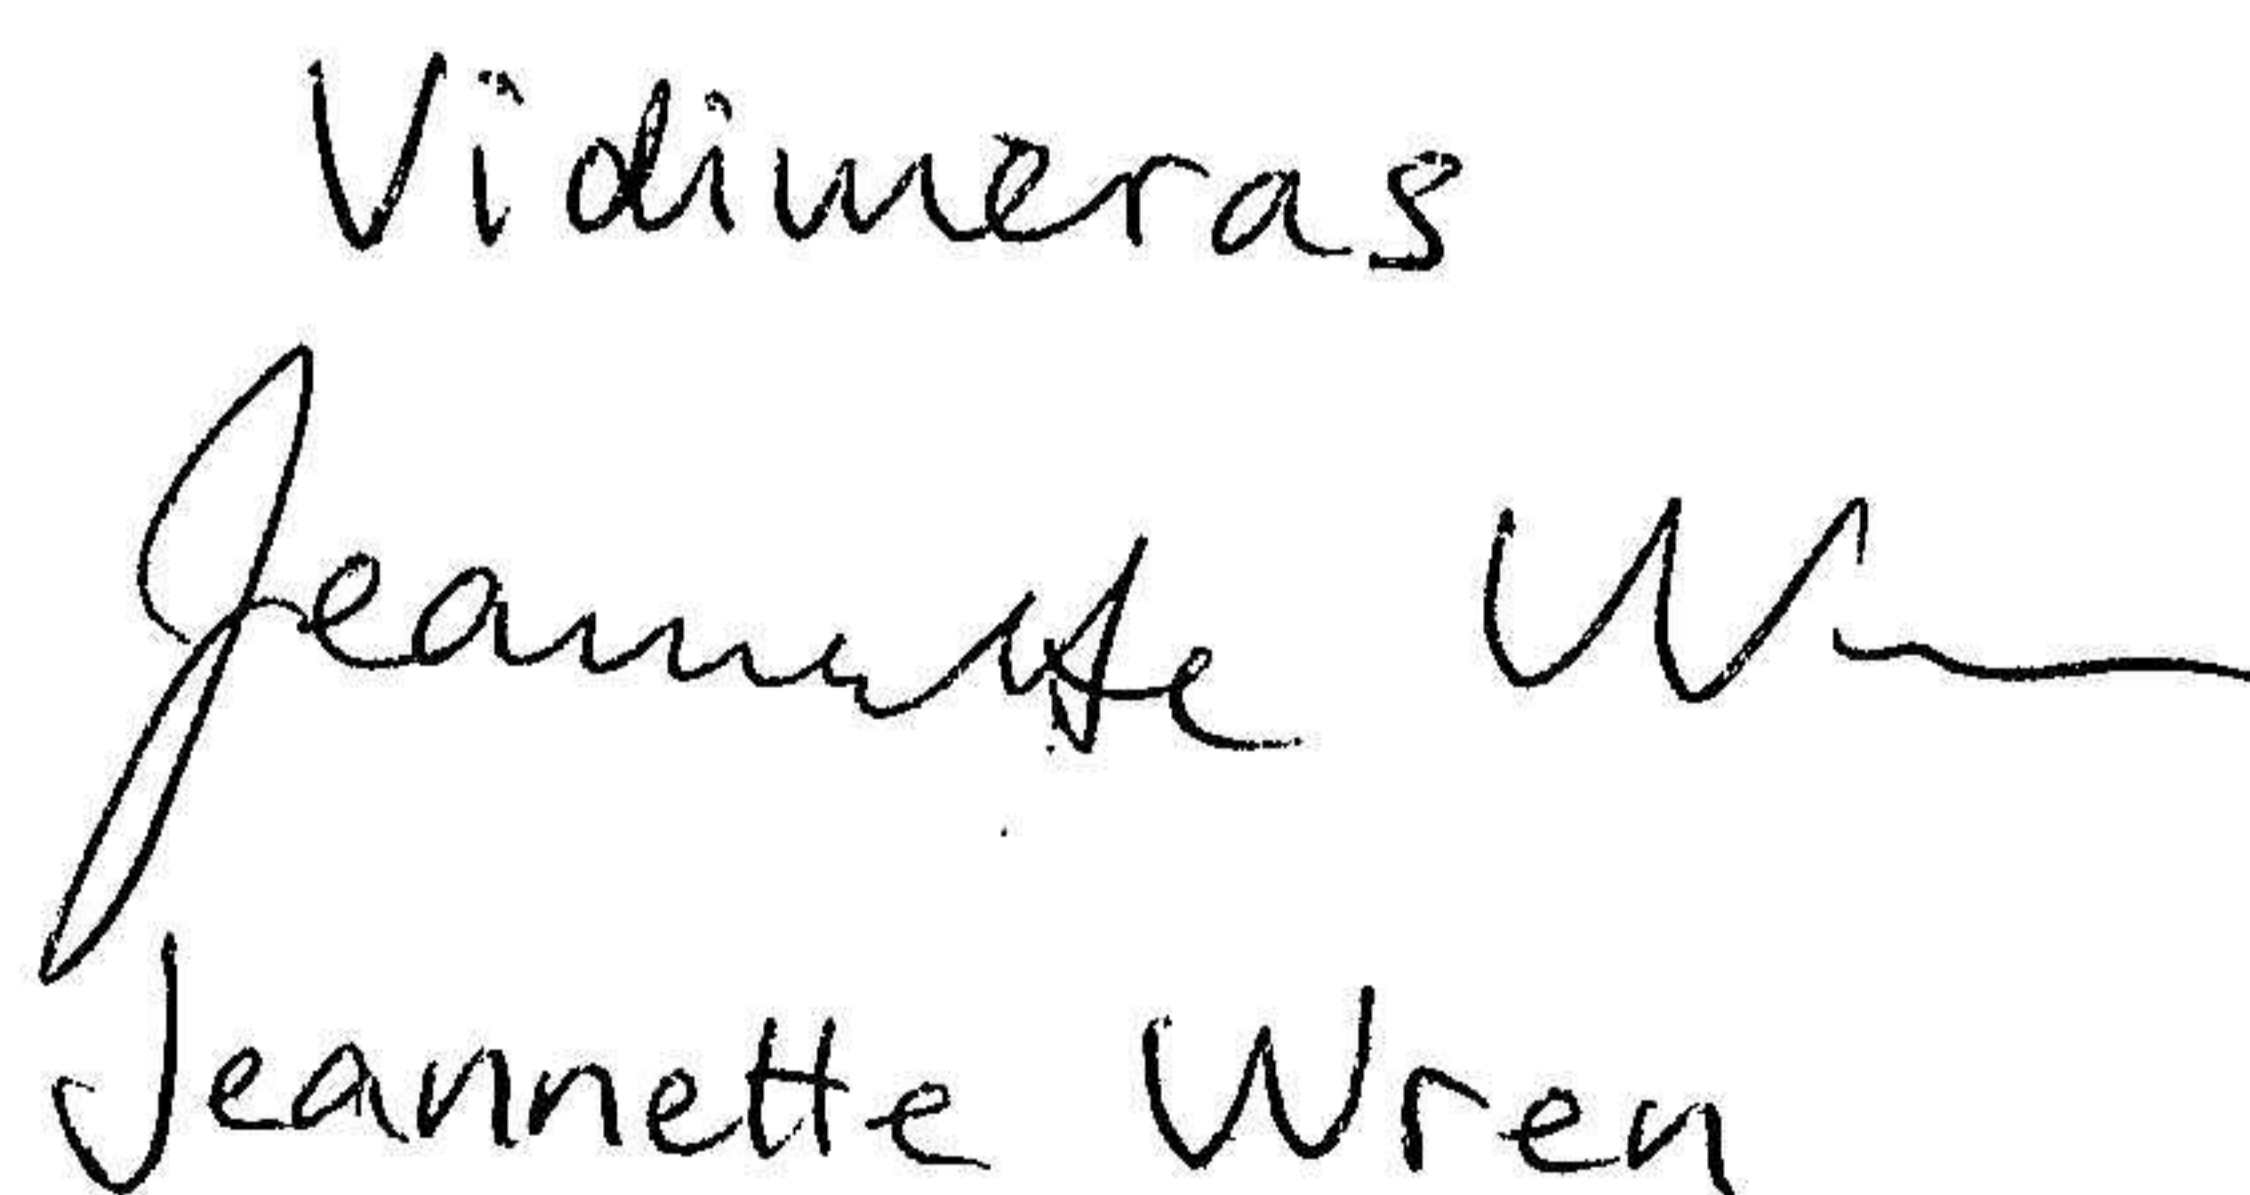 Vidimeras
Jeannette W
Jeannette Wren